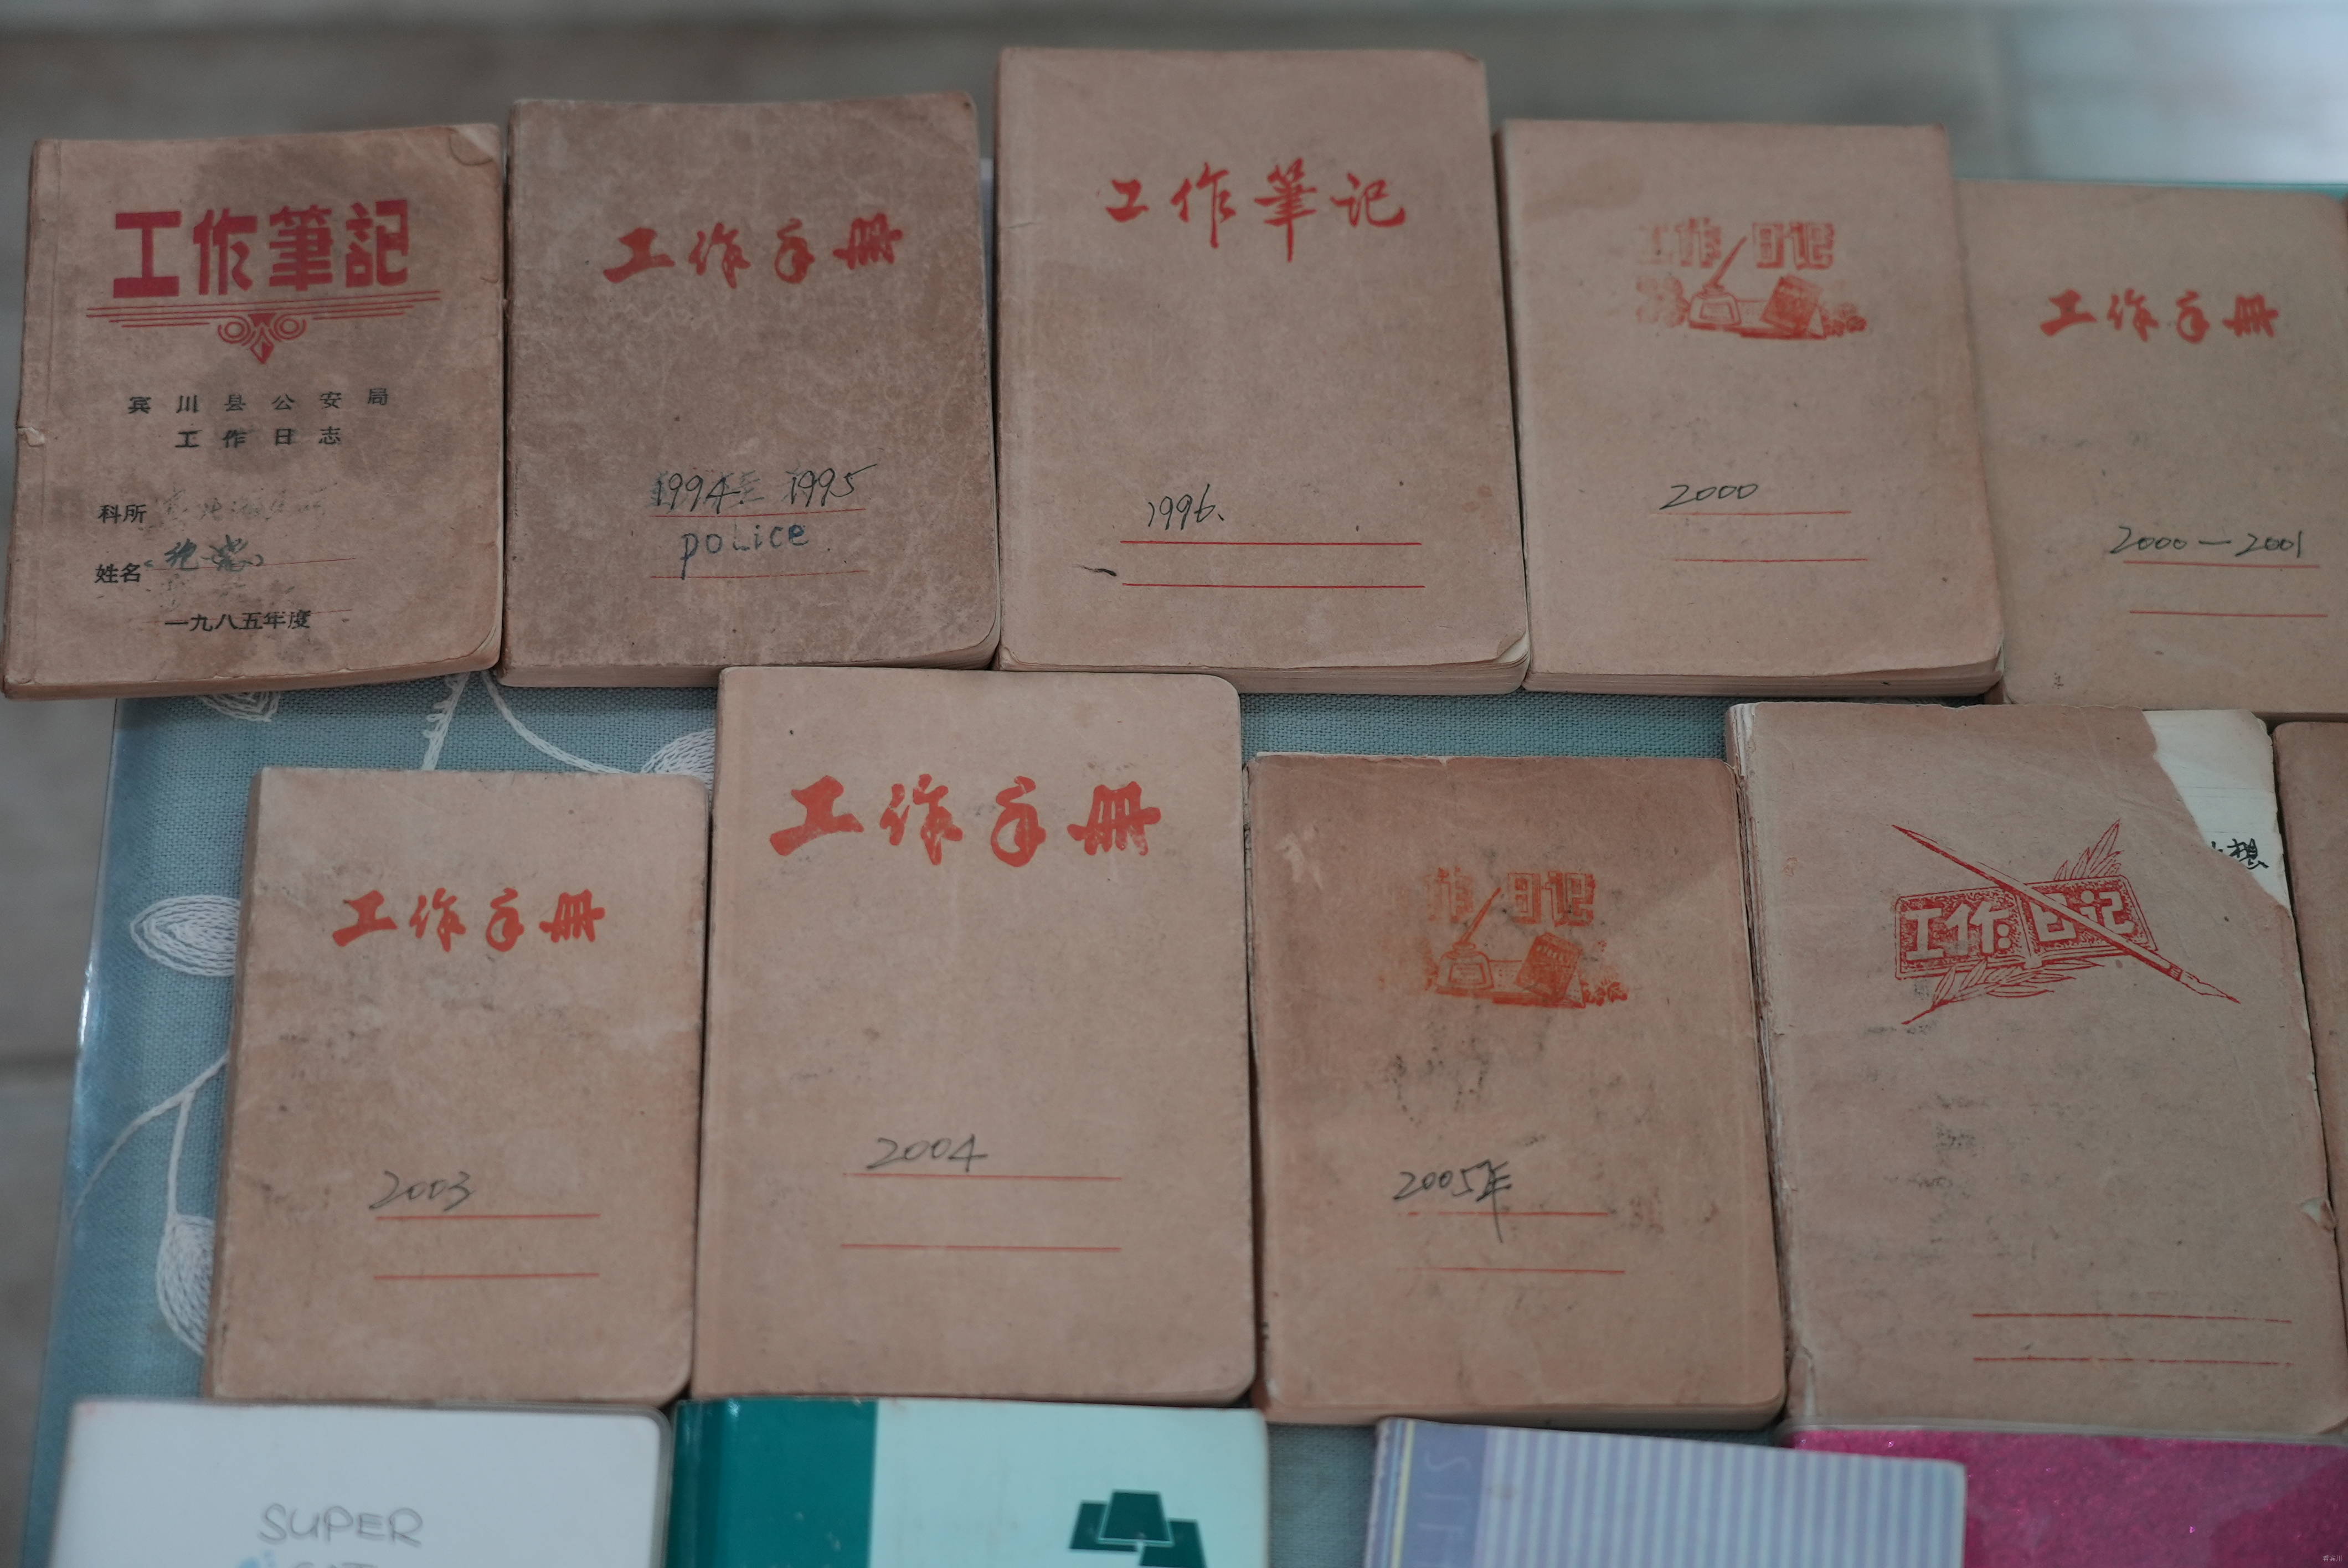 工作筆記
宾川县公安局
工作日志
科所
姓名
一九八五年度
工作手册
1994至 1995
police
工作筆记
1996.
工作日记
2000
工作手册
2000—2001
工作手册
2003
工作手册
2004
作日记
2005年
工作日记
想
SUPER